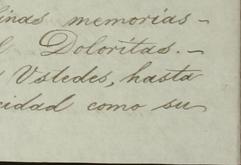 finas memorias -
l Doloritas. -
s Vstedes, hasta
cidad como su